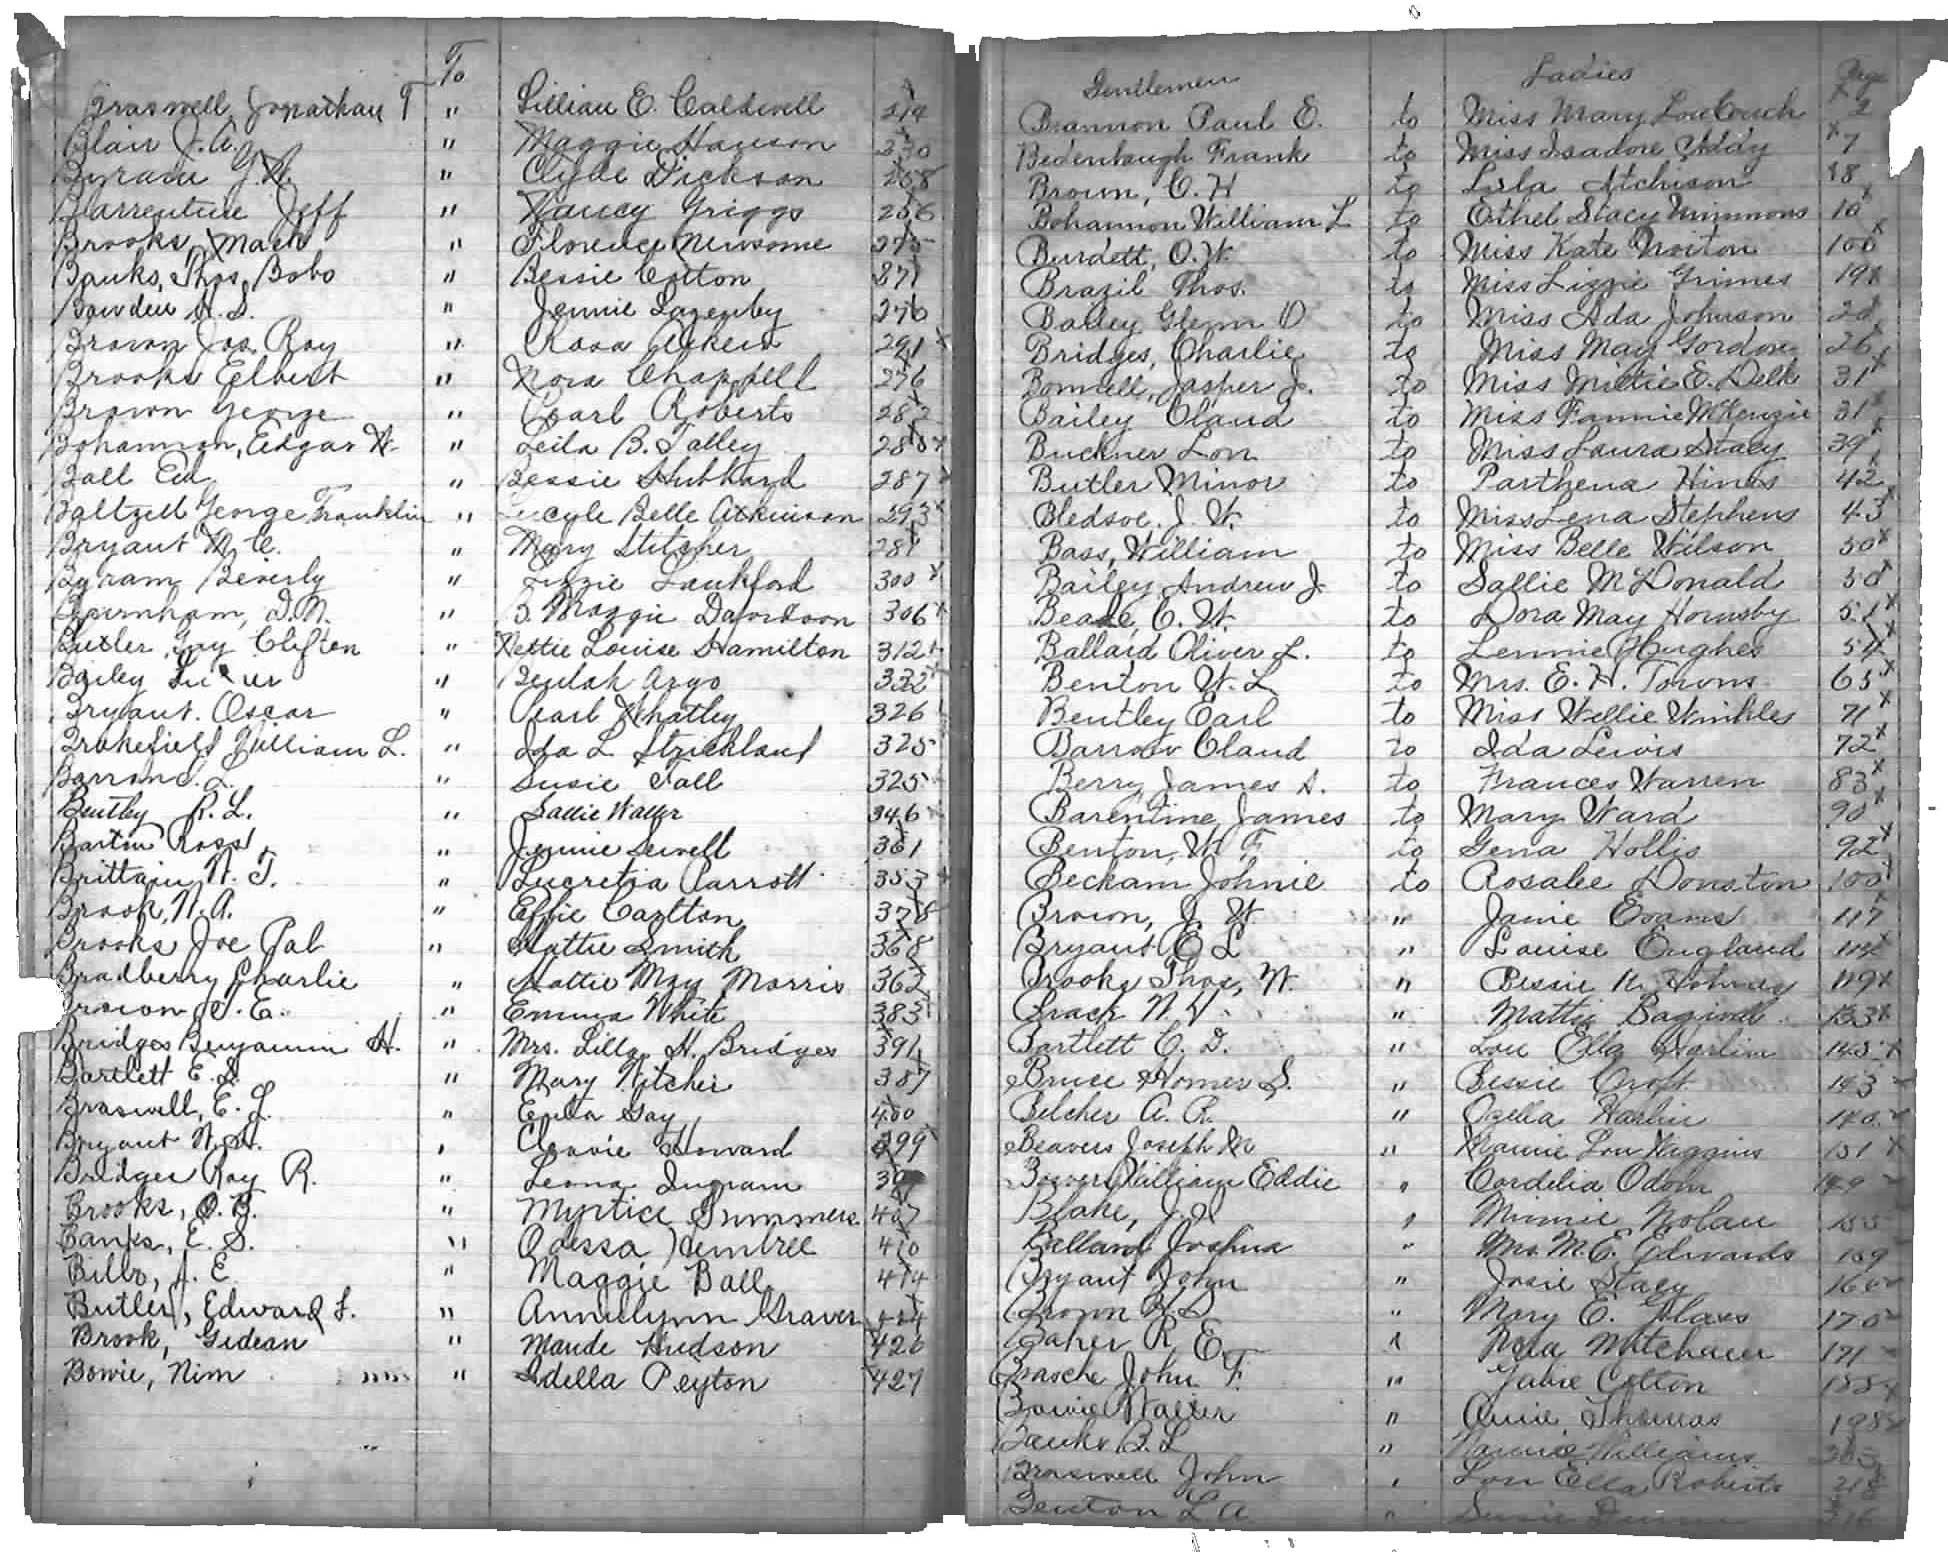 To
Braswell, Jonathan T " Lillian E. Caldwell 214
Blair J. A. " Maggie Hanson 230
Byram G. W. " Clyde Dickson 258
Barrentine Jeff " Nancy Griggs 256
Brooks Mack " Florence Newsome 275
Banks, Thos. Bobo " Bessie Cotton 271
Bowden H. S. " Jennie Lazenby 276
Brown Jos. Roy " Rosa Aiken 291 x
Brooks Elbert " Nora Chappell 276
Brown George " Pearl Roberts 282
Bohannon, Edgar W. " Leila B. Talley 280 x
Ball Ed " Bessie Hubbard 287 x
Baltzell George Franklin " Lucyle Belle Atkinson 293 x
Bryant W. C. " Mary Stitcher 281
Byram Beverly " Lizzie Lankford 300 x
Burnham, D. N. " B. Maggie Davidson 306 x
Butler Gay Clifton " Nettie Louise Hamilton 312 x
Bailey " Beulah Argo 332 x
Bryant. Oscar " Pearl Whatley 326
Brakefield William L. " Ida L Strickland 325
Barron J. L. " Susie Fall 325
Bentley R. L. " Sallie Waller 346
Barton Ross " Jennie Sewell 361
Brittain W. T. " Lucretia Parrott 353 x
Brook, W. A. " Effie Carlton 378
Brooks Joe Pab " Hattie Smith 368
Bradberry Charlie " Hattie May Morris 362
Brown J. E. " Emma White 383
Bridges Benjamin H. " Mrs. Lilla H. Bridges 391
Bartlett E. L. " Mary Pitcher 387
Braswell, E. L. " Eula Gay 400
Bryant W. H. " Clevie Howard 399
Bridges Roy R. " Leona Ingram
Brooks, O. B. " Myrtice Summers 407
Banks, E. S. " Odessa Hembree 410
Bills, J. E. " Maggie Ball 414
Butler, Edward L. " Annielynn Graves
Brook, Gidean " Maude Hudson 426
Bowie, Nim " Idella Peyton 427
Gentlemen Ladies Page
Brannon Paul E. to Miss Mary Lou Couch 2
Bedenbaugh Frank to Miss Isadore Addy x 7
Brown, C. H to Lula Atchison 18
Bohannon William L to Ethel Stacy Nimmons 10 x
Burdett, O. W. to Miss Kate Norton 100 x
Brazil Thos. to Miss Lizzie Grimes 19 x
Bailey Glenn O to Miss Ada Johnson 20
Bridges, Charlie to Miss May Gordon 26
Bonnell, Jasper J. to Miss Mittie E. Delk 31 x
Bailey Claud to Miss Fannie McKenzie 31 x
Buckner Lon to Miss Laura Stacy 39
Butler Minor to Parthena Hines 42
Bledsoe. J. W. to Miss Lena Stephens 43 x
Bass, William to Miss Belle Wilson 50 x
Bailey Andrew J. to Sallie McDonald 50 x
Beade, C. W. to Dora May Hornsby 51 x
Ballard Oliver L. to Lennie Hughes 54 x
Benton W. L to Mrs. E. H. Towns 65 x
Bentley Earl to Miss Willie Winkles 71 x
Barrow Claud to Ida Lewis 72 x
Berry James A. to Frances Warren 83 x
Barentine James to Mary Ward 90 x
Benton, W. F. to Gena Hollis 92 x
Beckam Johnie to Rosalee Donston 100
Brown, J. W. " Janie Evans 117
Bryant E L " Louise England 114 x
Brooks Thos, W. " Bessie 119 x
Brack N. H. " Mattie Bagwell 133 x
Bartlett C. D. " Lou Ella Harlin 145 x
Bruce Homer S. " Bessie Croft 143
Belcher A. R. " Ozella Harlin 140
Beavers Joseph M " Mannie Lou Wiggins 151 x
Bowers William Eddie " Cordelia Odom 149
Blake, J. H " Minnie Nolan 155
Ballard Joshua " Mrs. M. E. Edwards 159
Bryant John " Josie Stacy 160
Brown H. D " Mary E. Glass 170
Baker R. E. " Nora Mitcham 171
Brasche John F. " Janie Cotton 185
Bowie Walter " Anie Thomas 198
Banks B. L " Nannie Williams 205
Braswell John " Lou Ella Roberts 218
Benton L A " Susie